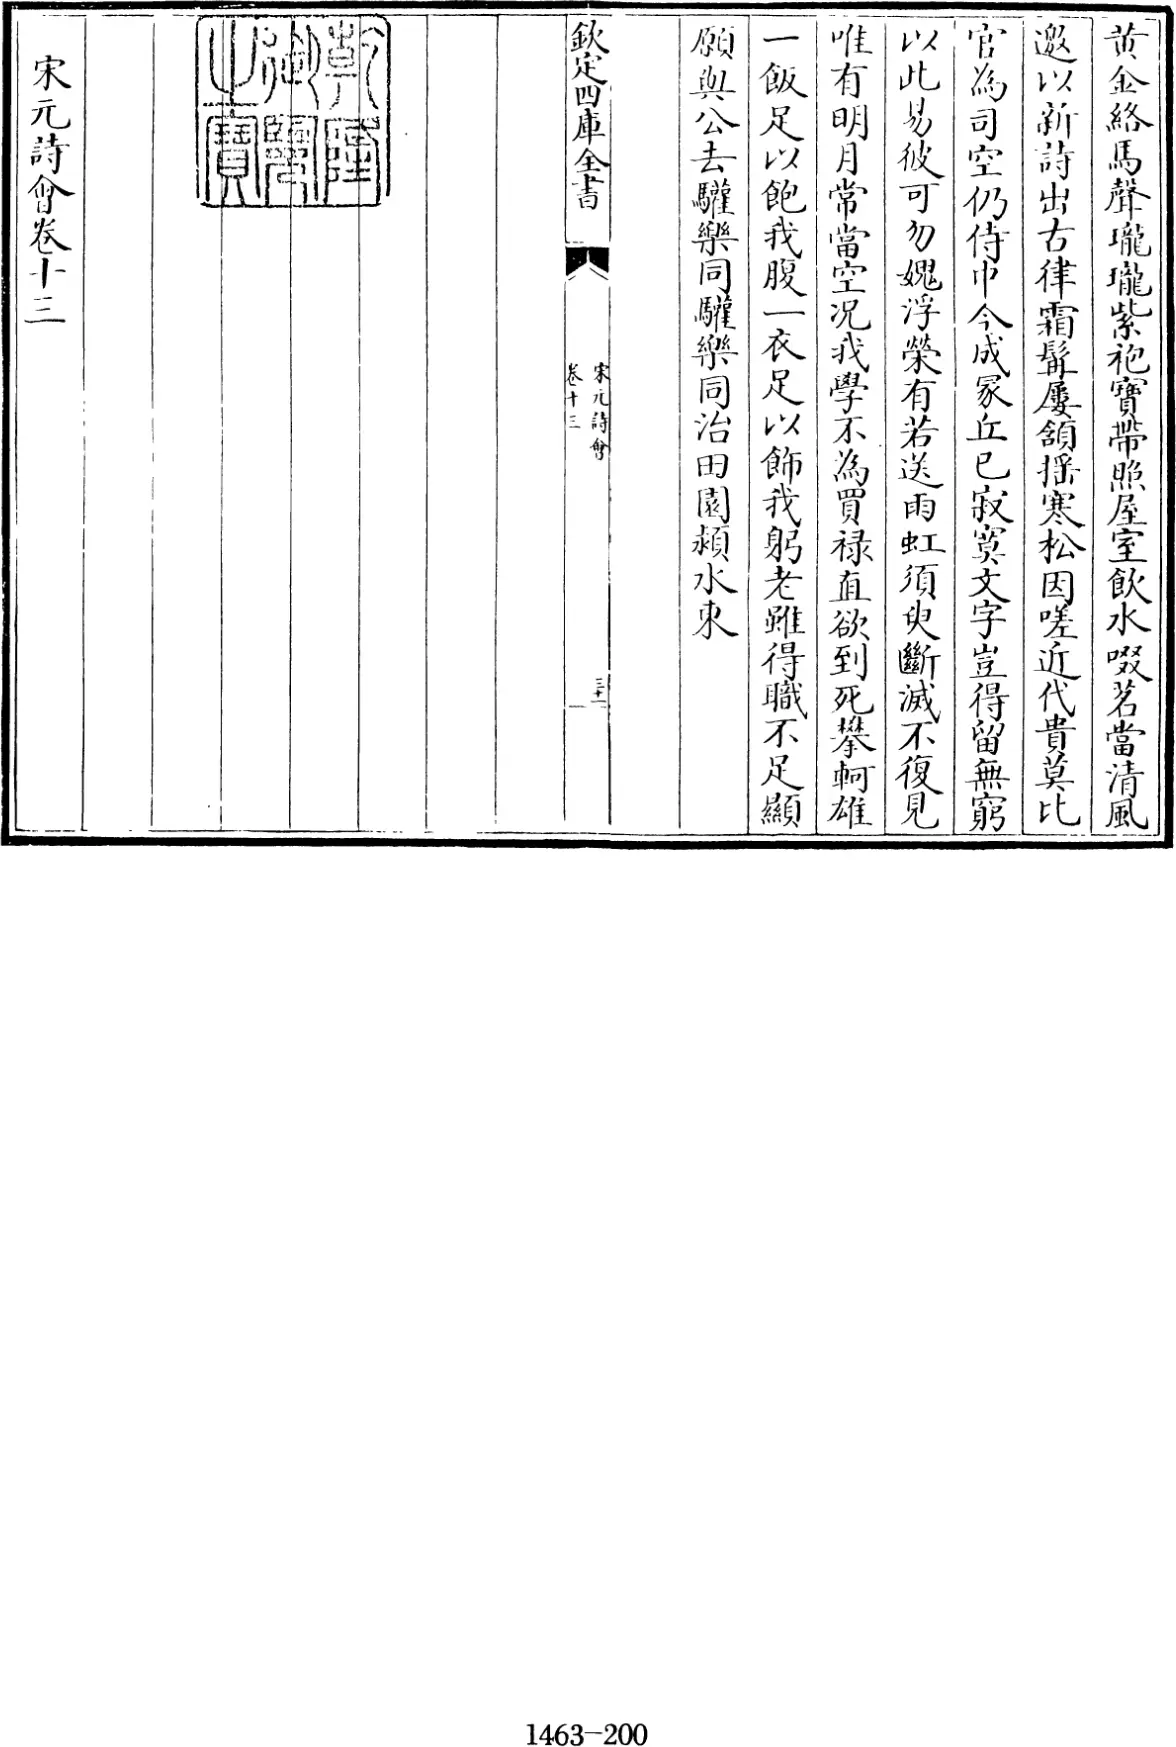 黄金絡馬聲瓏瓏紫袍寶帶照屋室飲水啜茗當清風
邀以新詩出古律霜髯屢頷揺寒松因嗟近代貴莫比
官為司空仍侍中今成冢丘已寂寞文字豈得留無窮
以此易彼可勿媿浮榮有若送雨虹須臾斷滅不復見
唯有明月常當空況我學不為買祿直欲到死攀軻雄
一飯足以飽我腹一衣足以飾我躬老雖得職不足顯
願與公去驩樂同驩樂同治田園潁水東
欽定四庫全書
宋元詩會
卷十三
三十一
乾隆御覽之寶
宋元詩會卷十三
1463-200